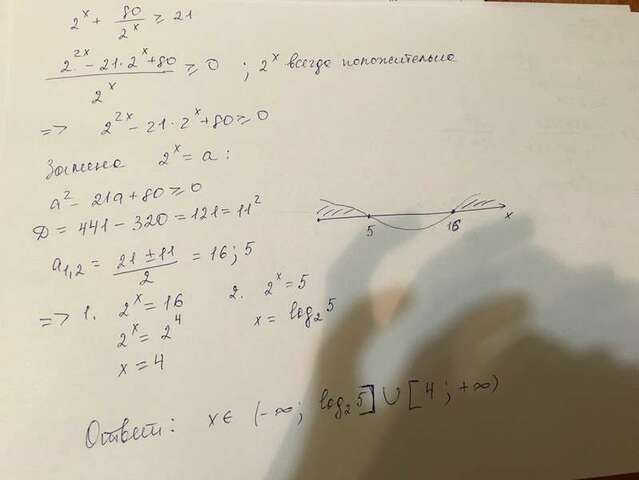 2^x + 80/2^x ≥ 21
(2^2x − 21 · 2^x + 80)/2^x ≥ 0 ; 2^x всегда положительно
=> 2^2x − 21 · 2^x + 80 ≥ 0
Замена 2^x = a :
a² − 21a + 80 ≥ 0
D = 441 − 320 = 121 = 11²
a1,2 = (21 ± 11)/2 = 16 ; 5
5 16 x
=> 1. 2^x = 16 2. 2^x = 5
2^x = 2^4 x = log₂5
x = 4
Ответ: x ∈ (−∞ ; log₂5] ∪ [4 ; +∞)